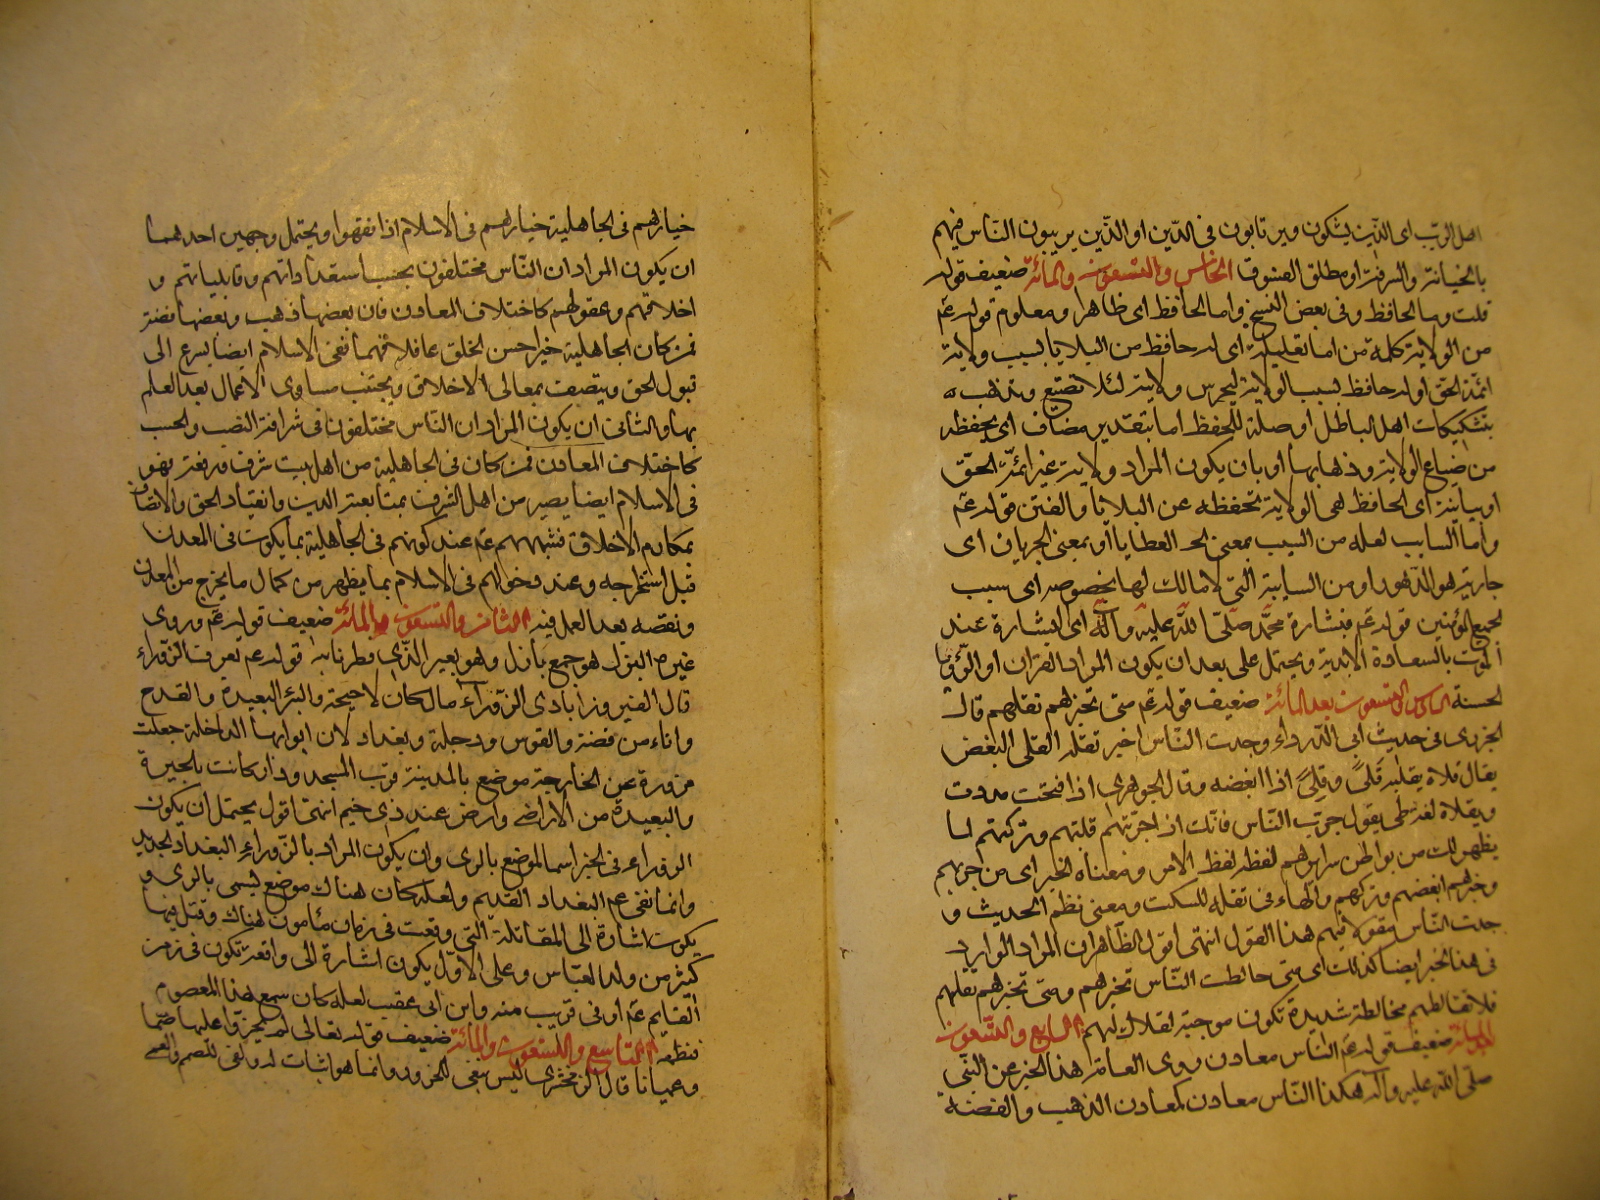 اصل الريب اى الذين يشكون ويرتابون فى الدين او الذين يريبون الناس فيهم
بالخيانة والسرقة او مطلق الفسوق الخامس والتسعون والمائة ضعيف قوله
قلت وما الحافظ وفى بعض النسخ واما الحافظ اى ظاهرا ومعلوم قوله عم
من الولاية كلمة من اما تعليلية اى له حافظ من البلايا بسبب ولاية
ائمة الحق او له حافظ بسبب الولاية ليحرس ولايته لئلا تضيع وتذهب
بتشكيكات اهل الباطل او صلة للحفظ اما بتقدير مضاف اى يحفظه
من ضياع الولاية وذهابها او بان يكون المراد ولاية غير ائمة الحق
او بيانية اى الحافظ هى الولاية تحفظه عن البلايا والفتن قوله عم
واما السايب لعله من السيب بمعنى العطايا او بمعنى الجريان اى
جارية هو الدهور او من السايبة التى لا مالك لها بخصوصه اى سيب
لجميع المؤمنين قوله عم فبشارة محمد صلى الله عليه وآله اى البشارة عند
الموت بالسعادة الابدية ويحتمل على بعد ان يكون المراد القران او الرؤيا
الحسنة السادس والتسعون بعد المائة ضعيف قوله عم متى تخبرهم تقلهم قال
الجزرى فى حديث ابى الدرداء وجدت الناس اخبر تقله القلى البغض
يقال قلاه يقليه قلى وقلى اذا ابغضه وقال الجوهرى اذا فتحت مددت
ويقلاه لغة طى يقول جرب الناس فانك اذا جربتهم قليتهم وتركتهم لما
يظهر لك من بواطن سرايرهم لفظه لفظ الامر ومعناه الخبر اى من جربهم
وخبرهم ابغضهم وتركهم والهاء فى تقله للسكت ومعنى نظم الحديث و
جدت الناس مقولا فيهم هذا القول انتهى اقول الظاهر ان المراد الوارد
فى هذا الخبر ايضا كذلك اى متى خالطت الناس تخبرهم ومتى تخبرهم تقلهم
فلا تخالطهم مخالطة شديدة تكون موجبة لقلاك لهم السابع والتسعون
المائة ضعيف قوله عم الناس معادن روى العامة هذا الخبر عن النبى
صلى الله عليه وآله هكذا الناس معادن كمعادن الذهب والفضة
خيارهم فى الجاهلية خيارهم فى الاسلام اذا فقهوا ويحتمل وجهين احدهما
ان يكون المراد ان الناس مختلفون بحسب استعداداتهم وقابلياتهم و
اخلاقهم وعقولهم كاختلاف المعادن فان بعضها ذهب وبعضها فضة
فمن كان الجاهلية خيرا حسن الخلق عاقلا فهما ففى الاسلام ايضا يسرع الى
قبول الحق ويتصف بمعالى الاخلاق ويجتنب مساوى الاعمال بعد العلم
بها والثانى ان يكون المراد ان الناس مختلفون فى شرافة النسب والحسب
كاختلاف المعادن فمن كان فى الجاهلية من اهل بيت شرف ورفعة فهو
فى الاسلام ايضا يصير من اهل الشرف بمتابعة الدين وانقياد الحق والاتصاف
بمكارم الاخلاق فشبههم عم عند كونهم فى الجاهلية بما يكون فى المعدن
قبل استخراجه وعند دخولهم فى الاسلام بما يظهر من كمال ما يخرج من المعدن
ونقصه بعد العمل فيه الثامن والتسعون والمائة ضعيف قوله عم وروى
غيره البزل هو جمع بازل وهو بعير الذى فطر نابه قوله عم تعرف الزوراء
قال الفيروزآبادى الزوراء مال كان لاحيحة والبئر البعيدة والقدح
واناء من فضة والقوس ودجلة وبغداد لان ابوابها الداخلة جعلت
مزورة عن الخارجة موضع بالمدينة قرب المسجد ودار كانت بالحيرة
والبعيدة من الاراضى وارض عند ذى خيم انتهى اقول يحتمل ان يكون
الزوراء فى الخبر اسما لموضع بالرى وان يكون المراد بالزوراء البغداد الجديد
وانما نفى عم البغداد القديم ولعله كان هناك موضع يسمى بالرى و
يكون اشارة الى المقاتلة التى وقعت فى زمان مأمون هناك وقتل فيها
كثير من ولد العباس وعلى الاول يكون اشارة الى واقعة تكون فى زمن
القايم عم او فى قريب منه وابن ابى عقب لعله كان سمع هذا المعصوم
فنظمه التاسع والتسعون والمائة ضعيف قوله تعالى لم يخروا عليها صما
وعميانا قال الزمخشرى ليس بنفى للخرور وانما هو اثبات له ونفى للصمم والعمى